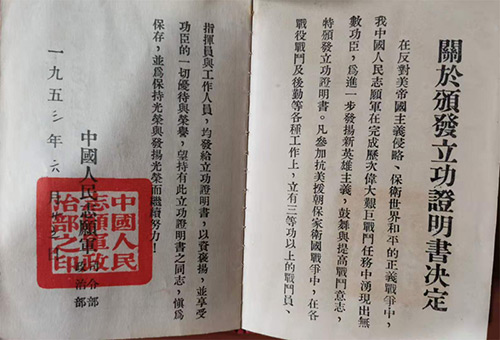 關於頒發立功證明書决定
在反對美帝國主義侵略,保衛世界和平的正義戰爭中,
我中國人民志願軍在完成歷次偉大艱巨戰鬥任務中湧現出無
數功臣,爲進一步發揚新英雄主義,鼓舞與提高戰鬥意志,
特頒發立功證明書。凡參加抗美援朝保家衛國戰爭中,在各
戰役戰鬥及後勤等各種工作上,立有三等功以上的戰鬥員、
指揮員與工作人員,均發給立功證明書,以資褒揚,並享受
功臣的一切優待與榮譽,望持有此立功證明書之同志,慎爲
保存,並爲保持光榮與發揚光榮而繼續努力!
中國人民志願軍
司令部
政治部
一九五三年六月
中國人民
志願軍政
治部之印